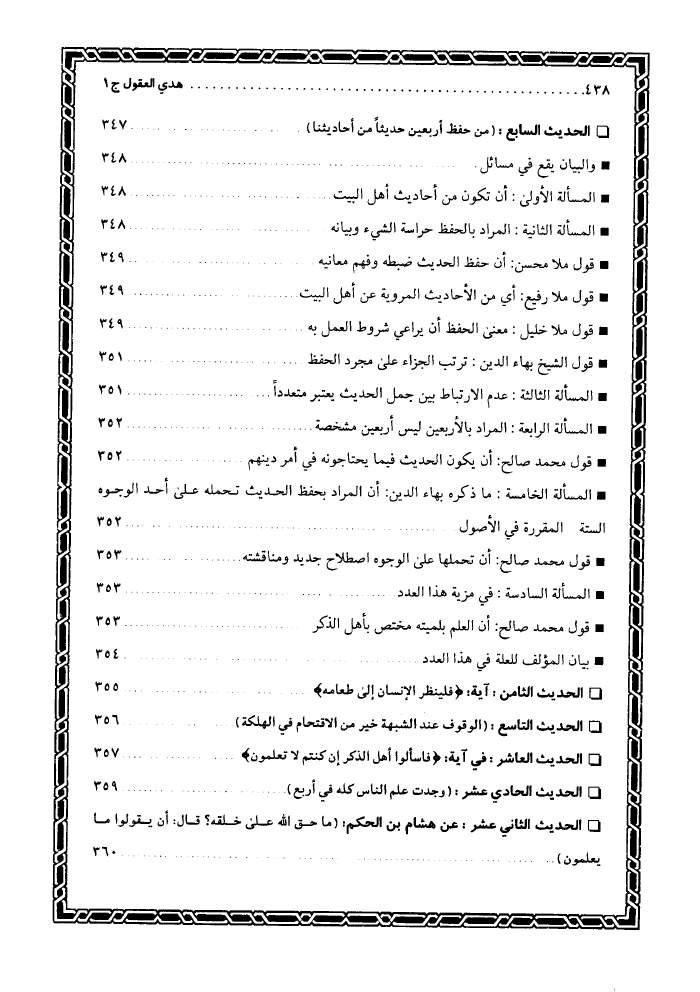 ٤٣٨ ........ هدي العقول ج١
❏ الحديث السابع : (من حفظ أربعين حديثاً من أحاديثنا) ........ ٣٤٧
■ والبيان يقع في مسائل ........ ٣٤٨
■ المسألة الأولىٰ : أن تكون من أحاديث أهل البيت ........ ٣٤٨
■ المسألة الثانية : المراد بالحفظ حراسة الشيء وبيانه ........ ٣٤٨
■ قول ملا محسن: أن حفظ الحديث ضبطه وفهم معانيه ........ ٣٤٩
■ قول ملا رفيع: أي من الأحاديث المروية عن أهل البيت ........ ٣٤٩
■ قول ملا خليل : معنىٰ الحفظ أن يراعي شروط العمل به ........ ٣٤٩
■ قول الشيخ بهاء الدين : ترتب الجزاء علىٰ مجرد الحفظ ........ ٣٥١
■ المسألة الثالثة : عدم الارتباط بين جمل الحديث يعتبر متعدداً ........ ٣٥١
■ المسألة الرابعة : المراد بالأربعين ليس أربعين مشخصة ........ ٣٥٢
■ قول محمد صالح: أن يكون الحديث فيما يحتاجونه في أمر دينهم ........ ٣٥٢
■ المسألة الخامسة : ما ذكره بهاء الدين: أن المراد بحفظ الحديث تحمله علىٰ أحد الوجوه
الستة المقررة في الأصول ........ ٣٥٢
■ قول محمد صالح: أن تحملها علىٰ الوجوه اصطلاح جديد ومناقشته ........ ٣٥٣
■ المسألة السادسة : في مزية هذا العدد ........ ٣٥٣
■ قول محمد صالح: أن العلم بلميته مختص بأهل الذكر ........ ٣٥٣
■ بيان المؤلف للعلة في هذا العدد ........ ٣٥٤
❏ الحديث الثامن : آية: ﴿فلينظر الإنسان إلىٰ طعامه﴾ ........ ٣٥٥
❏ الحديث التاسع : (الوقوف عند الشبهة خير من الاقتحام في الهلكة) ........ ٣٥٦
❏ الحديث العاشر : في آية: ﴿فاسألوا أهل الذكر إن كنتم لا تعلمون﴾ ........ ٣٥٧
❏ الحديث الحادي عشر : (وجدت علم الناس كله في أربع) ........ ٣٥٩
❏ الحديث الثاني عشر : عن هشام بن الحكم: (ما حق الله علىٰ خلقه؟ قال: أن يقولوا ما
يعلمون) ........ ٣٦٠